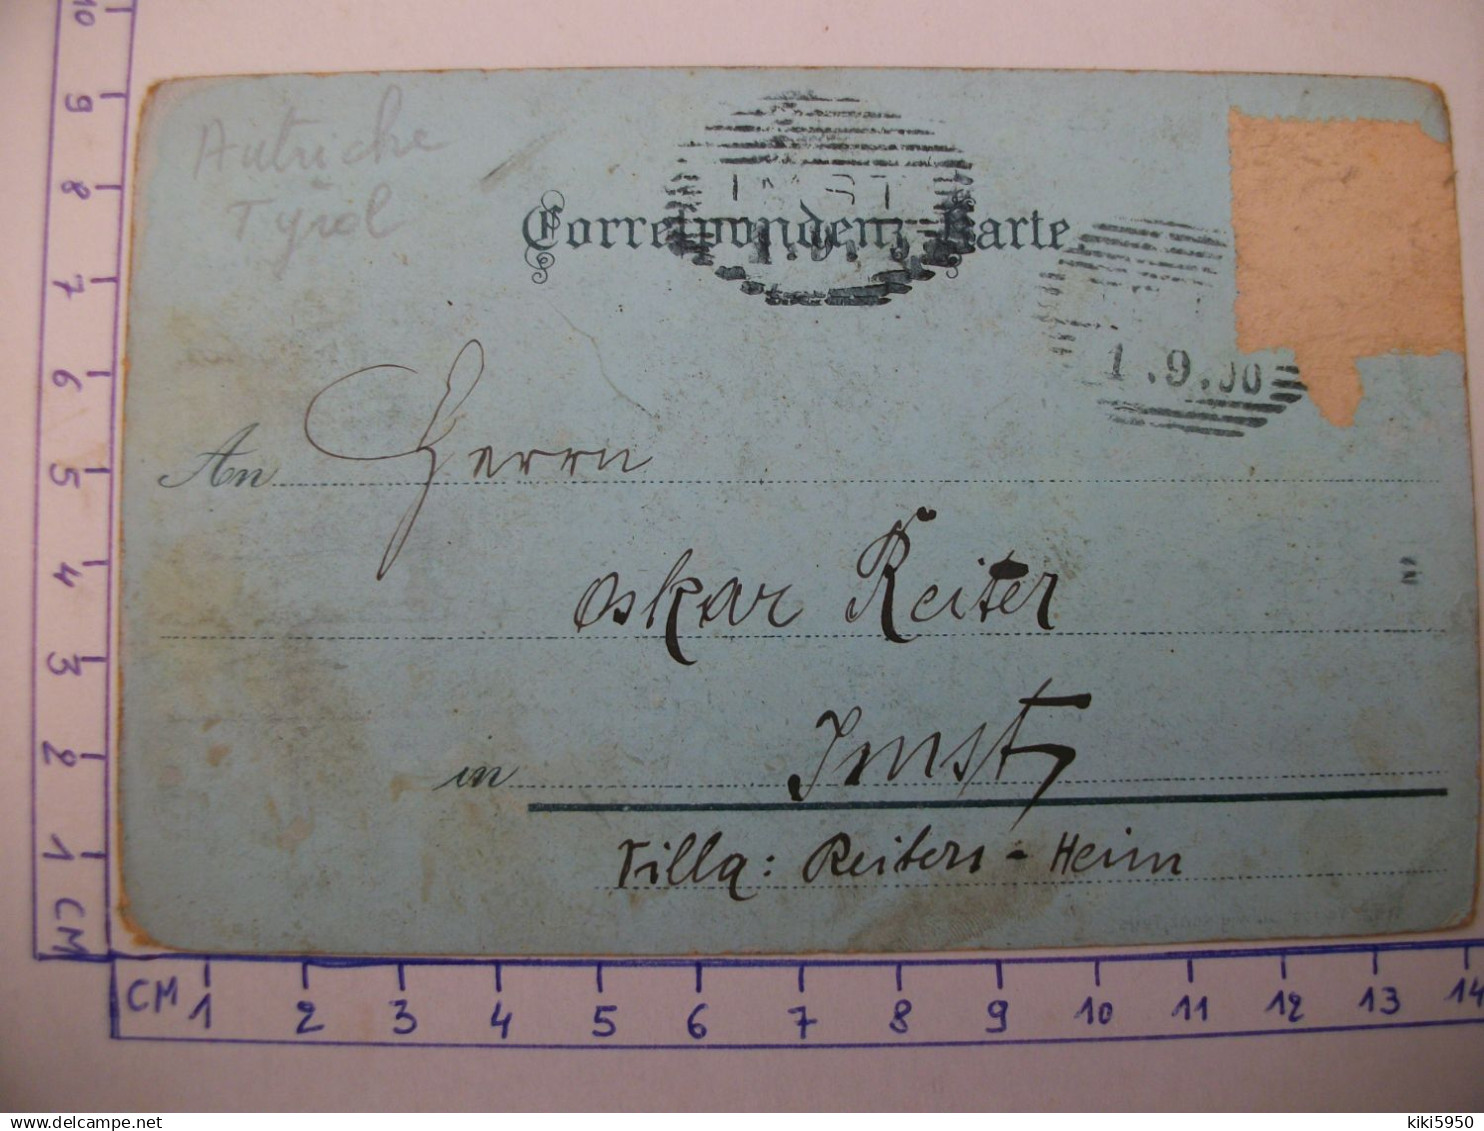 Autriche
Tyrol
IMST
Correspondenz-Karte.
1.9.00
An Herrn
Oskar Reiter
in Imst
Villa: Reiters-Heim
10
9
8
7
6
5
4
3
2
1
CM
CM 1 2 3 4 5 6 7 8 9 10 11 12 13 14
kiki5950